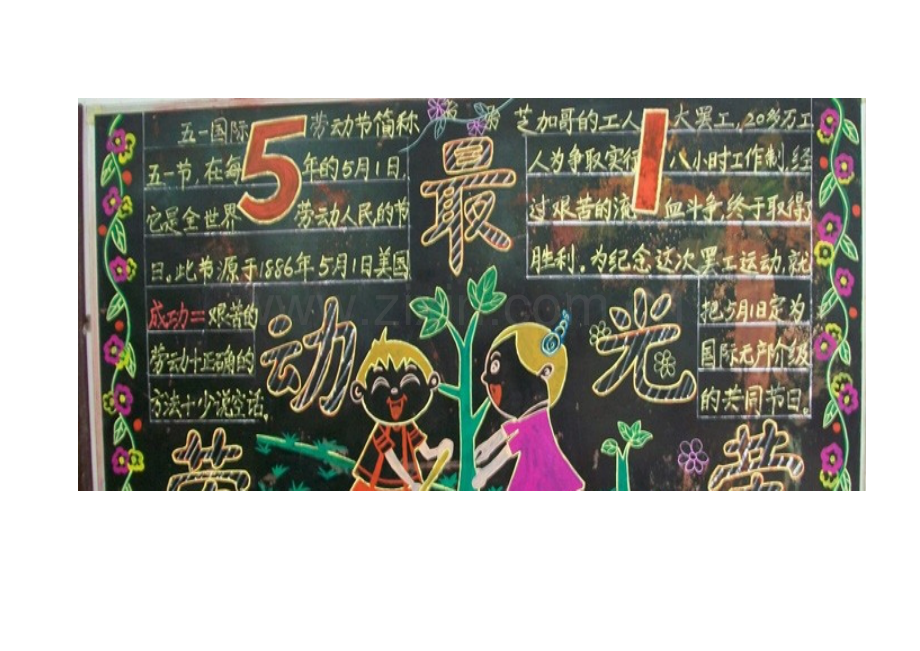 五一国际 5 劳动节简称
五一节,在每 年的5月1日,
它是全世界 劳动人民的节
日。此节源于1886年5月1日美国
芝加哥的工人 1 大罢工,20多万工
人为争取实行 八小时工作制,经
过艰苦的流 血斗争,终于取得
胜利。为纪念这次罢工运动,就
把5月1日定为
国际无产阶级
的共同节日。
成功=艰苦的
劳动+正确的
方法+少说空话。
劳
动
最
光
荣